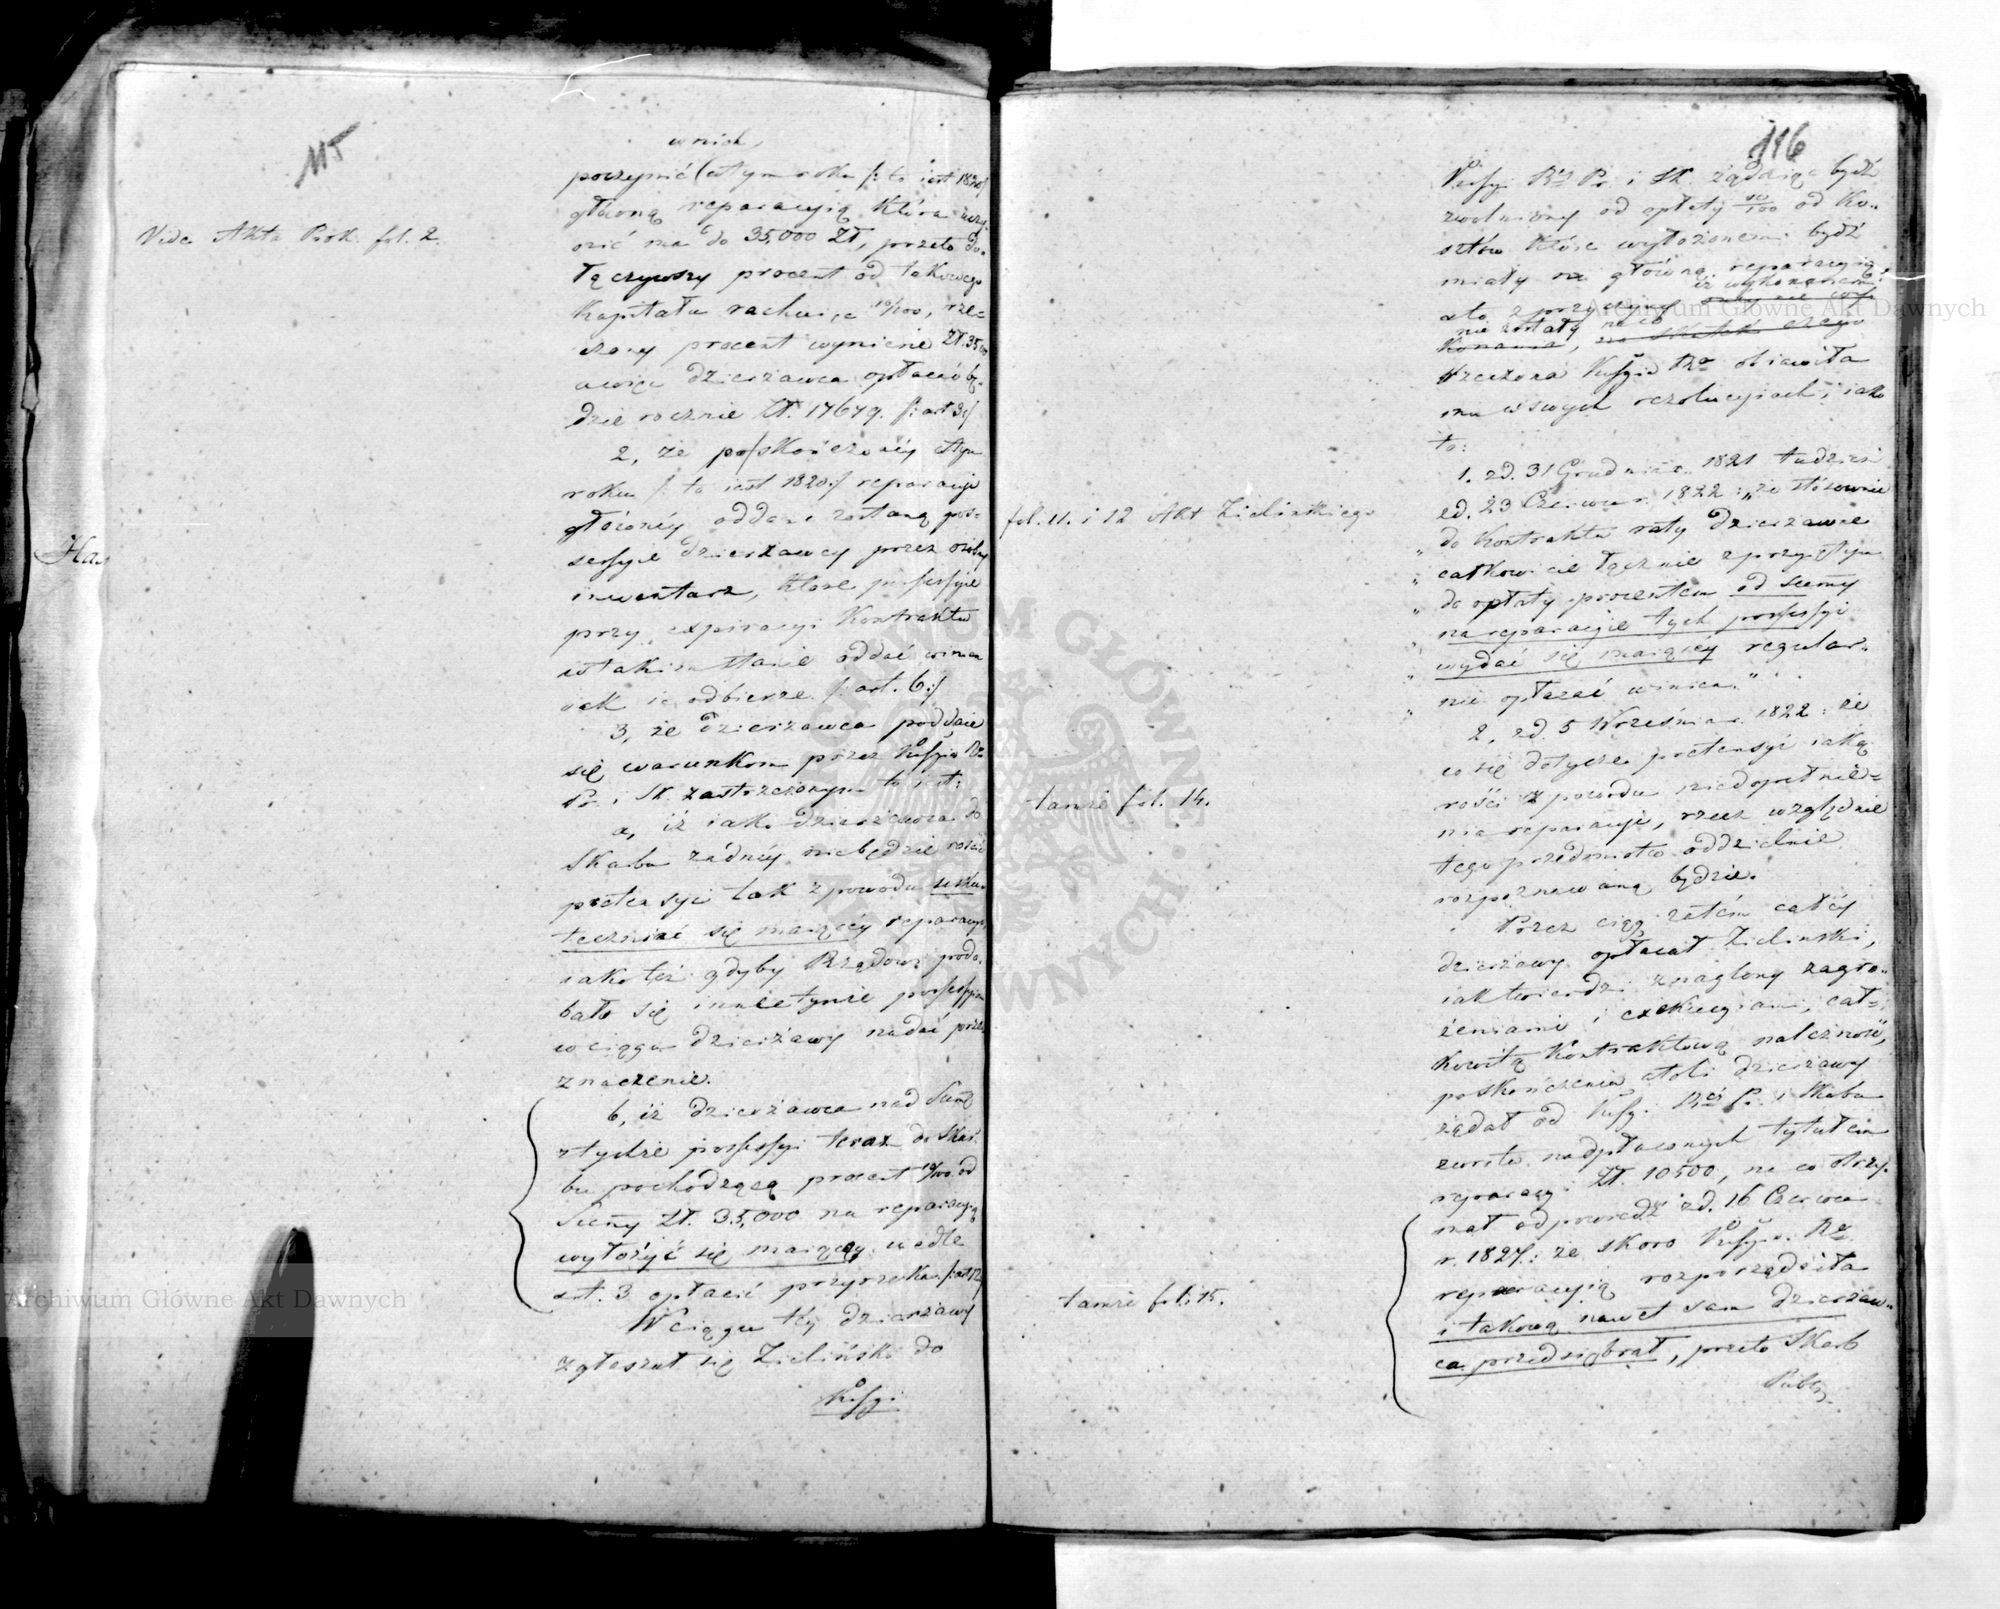 115
Vide Akta Prok. fol. 2.
w nich
poczynić w tym roku /: to iest 1820 :/
główną reparacyią która wyno-
sić ma do 35,000 Zł, przeto do-
łączywszy procent od takowego
Kapitału rachuiąc 10/100, rze-
czony procent wyniesie Zł. 3500
a więc dzierżawca opłacać bę-
dzie rocznie Zł. 17679. /: art 3 :/
2, że po skończonéy w tym
roku /: to iest 1820 :/ reparacyi
głównéy oddane zostaną pos-
sessye dzierżawcy przez osobny
inwentarz, które possessye
przy expiracyi Kontraktu
w takim stanie oddać winien
iak ie odbierze /: art. 6 :/
3, że dzierżawca poddaie
się warunkom przez Kussyią Rz.
Pr. i Sk. zastrzeżonym to iest:
a, iż iako dzierżawca do
Skarbu żadnéy niebędzie rościć
pretensyi tak z powodu usku-
teczniać się maiącéy reparacyi,
iako też gdyby Rządowi podo-
bało się inne tymże possessyiom
w ciągu dzierżawy nadać prze-
znaczenie.
b, iż dzierżawca nad Summę
z tychże possessyi teraz do Skar-
bu pochodzącą procent 10/100 od
Summy Zł. 35,000 na reparacyą
wyłożyć się maiącéy wedle
art. 3 opłacić przyrzeka /: art 12 :/
W ciągu téy dzierżawy
zgłaszał się Zieliński do
Kussyi
116
Kussyi Rz. Pr. i Sk. żądaiąc bydź
zwolniony od opłaty 10/100 od Ko-
sztów które wyłożonemi bydź
miały na główną reparacyią,
a to z przyczyny iż wykonanemi
nie zostały, na co
Rzeczona Kussyia Rz. obiawiła
mu w swych rezolucyiach, iako
to:
1. z d. 31 Grudnia r. 1821 tudzież
z d. 23 Czerwca r. 1822: „że stósownie
fol. 11. i 12 Akt Zielińskiego
„ do Kontraktu raty dzierżawne
„ całkowicie łącznie z przyiętym
„ do opłaty procentem od summy
„ na reparacyie tych possessyi
„ wydać się maiącéy regular-
„ nie opłacać winien."
2. z d. 5 Września r. 1822: że
co się dotycze pretensyi iaką
tamże fol. 14.
rości z powodu niedopełnie-
nia reparacyi, rzecz względnie
tego przedmiotu oddzielnie
rozpoznawaną będzie.
Przez ciąg zatém całéy
dzierżawy opłacał Zieliński,
iak twierdzi znaglony zagro-
żeniami i exekucyiami, cał-
kowitą Kontraktową należność,
po skończeniu atoli dzierżawy
żądał od Kussyi Rz. P. i Skarbu
zwrotu nadpłaconych tytułem
reparacyi Zł. 10500, na co otrzy-
mał odpowiedź z d. 16 Czerwca
r. 1827: że skoro Kussyia Rz.
reparacyią rozporządziła
tamże fol. 15.
i takową nawet sam dzierżaw-
ca przedsiębrał, przeto Skarb
Publ.